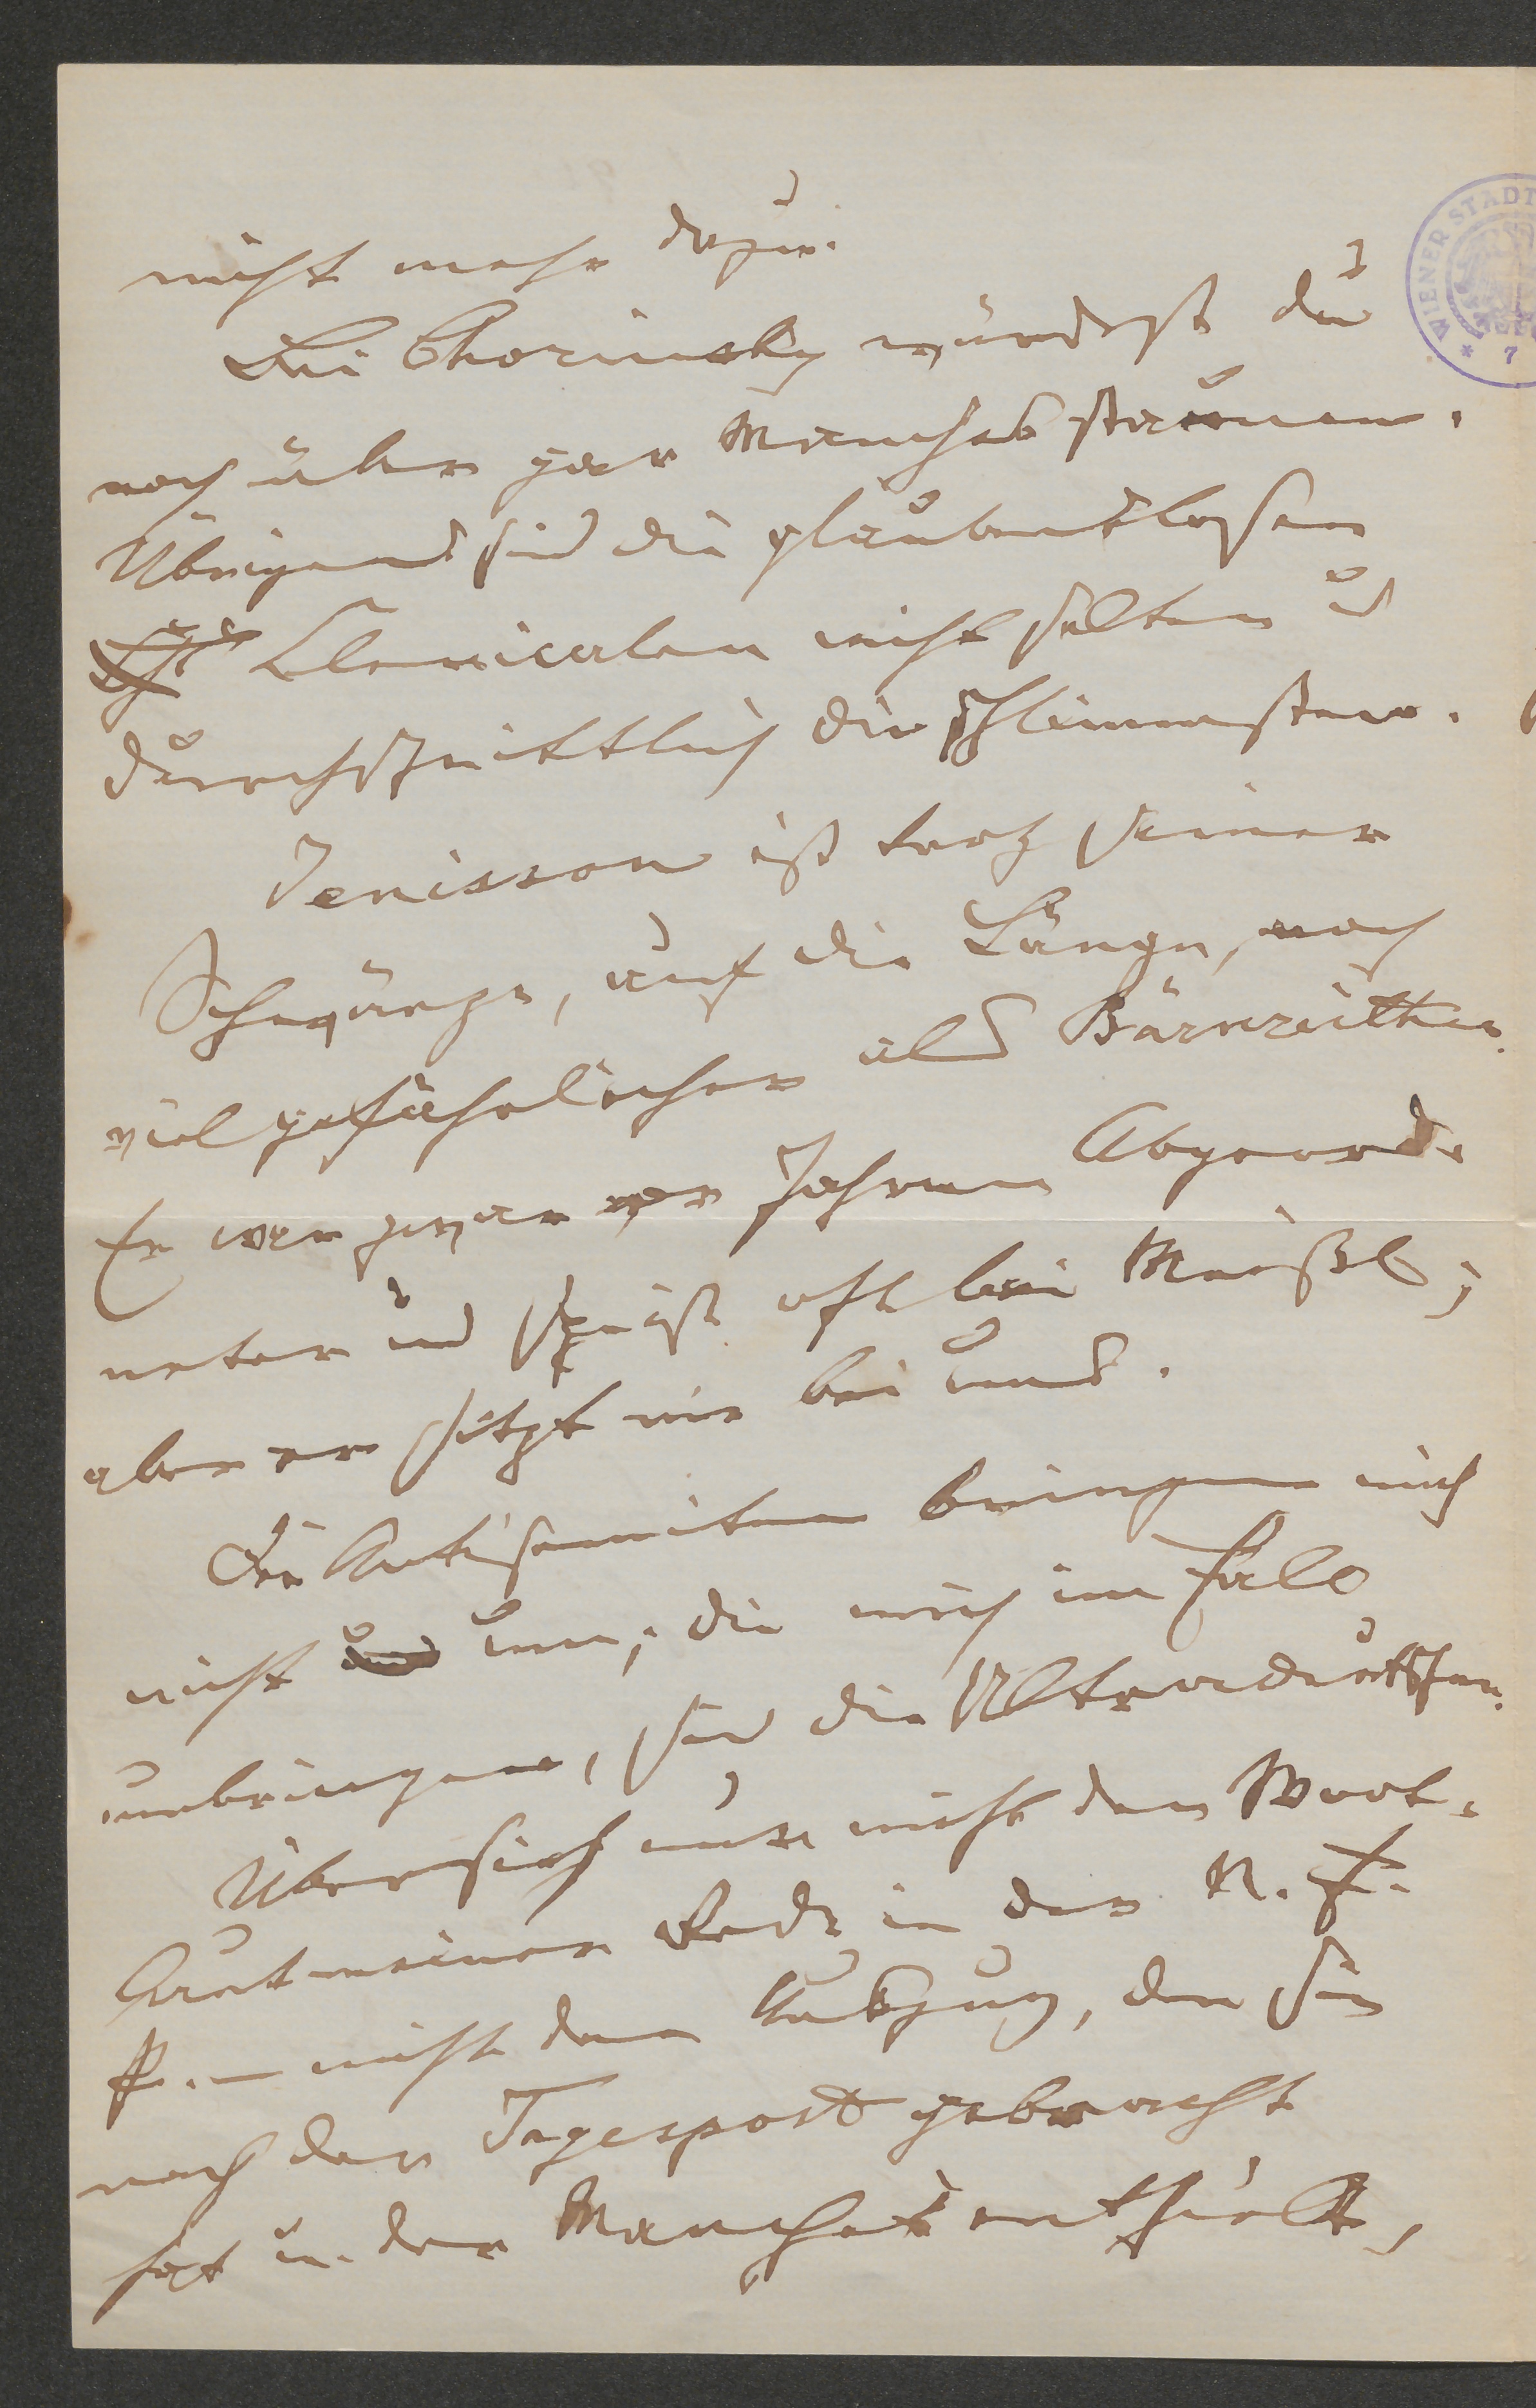 nicht mehr dazu.
Bei Chorinsky würdest du
noch über gar Manches staunen.
Übrigens sind die glaubenslosen
Clericalen nicht selten u
durchschnittlich die schlimmsten.
Tenisson ist trotz seiner
Schwärze, auf die Länge, noch
viel gefährlicher als Bärnreither.
Er war zwar vor Jahren Abgeord-
neter und speist oft bei Meißl;
aber er sitzt nie bei uns.
Die Antisemiten bringen mich
nicht um; die mich im Falle
umbringen, sind die Ultradeutschen.
Übersieh nur nicht den Wort-
laut meiner Rede in der N. F.
P. – nicht den Auszug, den sie
nach der Tagespost gebracht
hat u. der Manches enthielt,
WIENER STADT
* 7